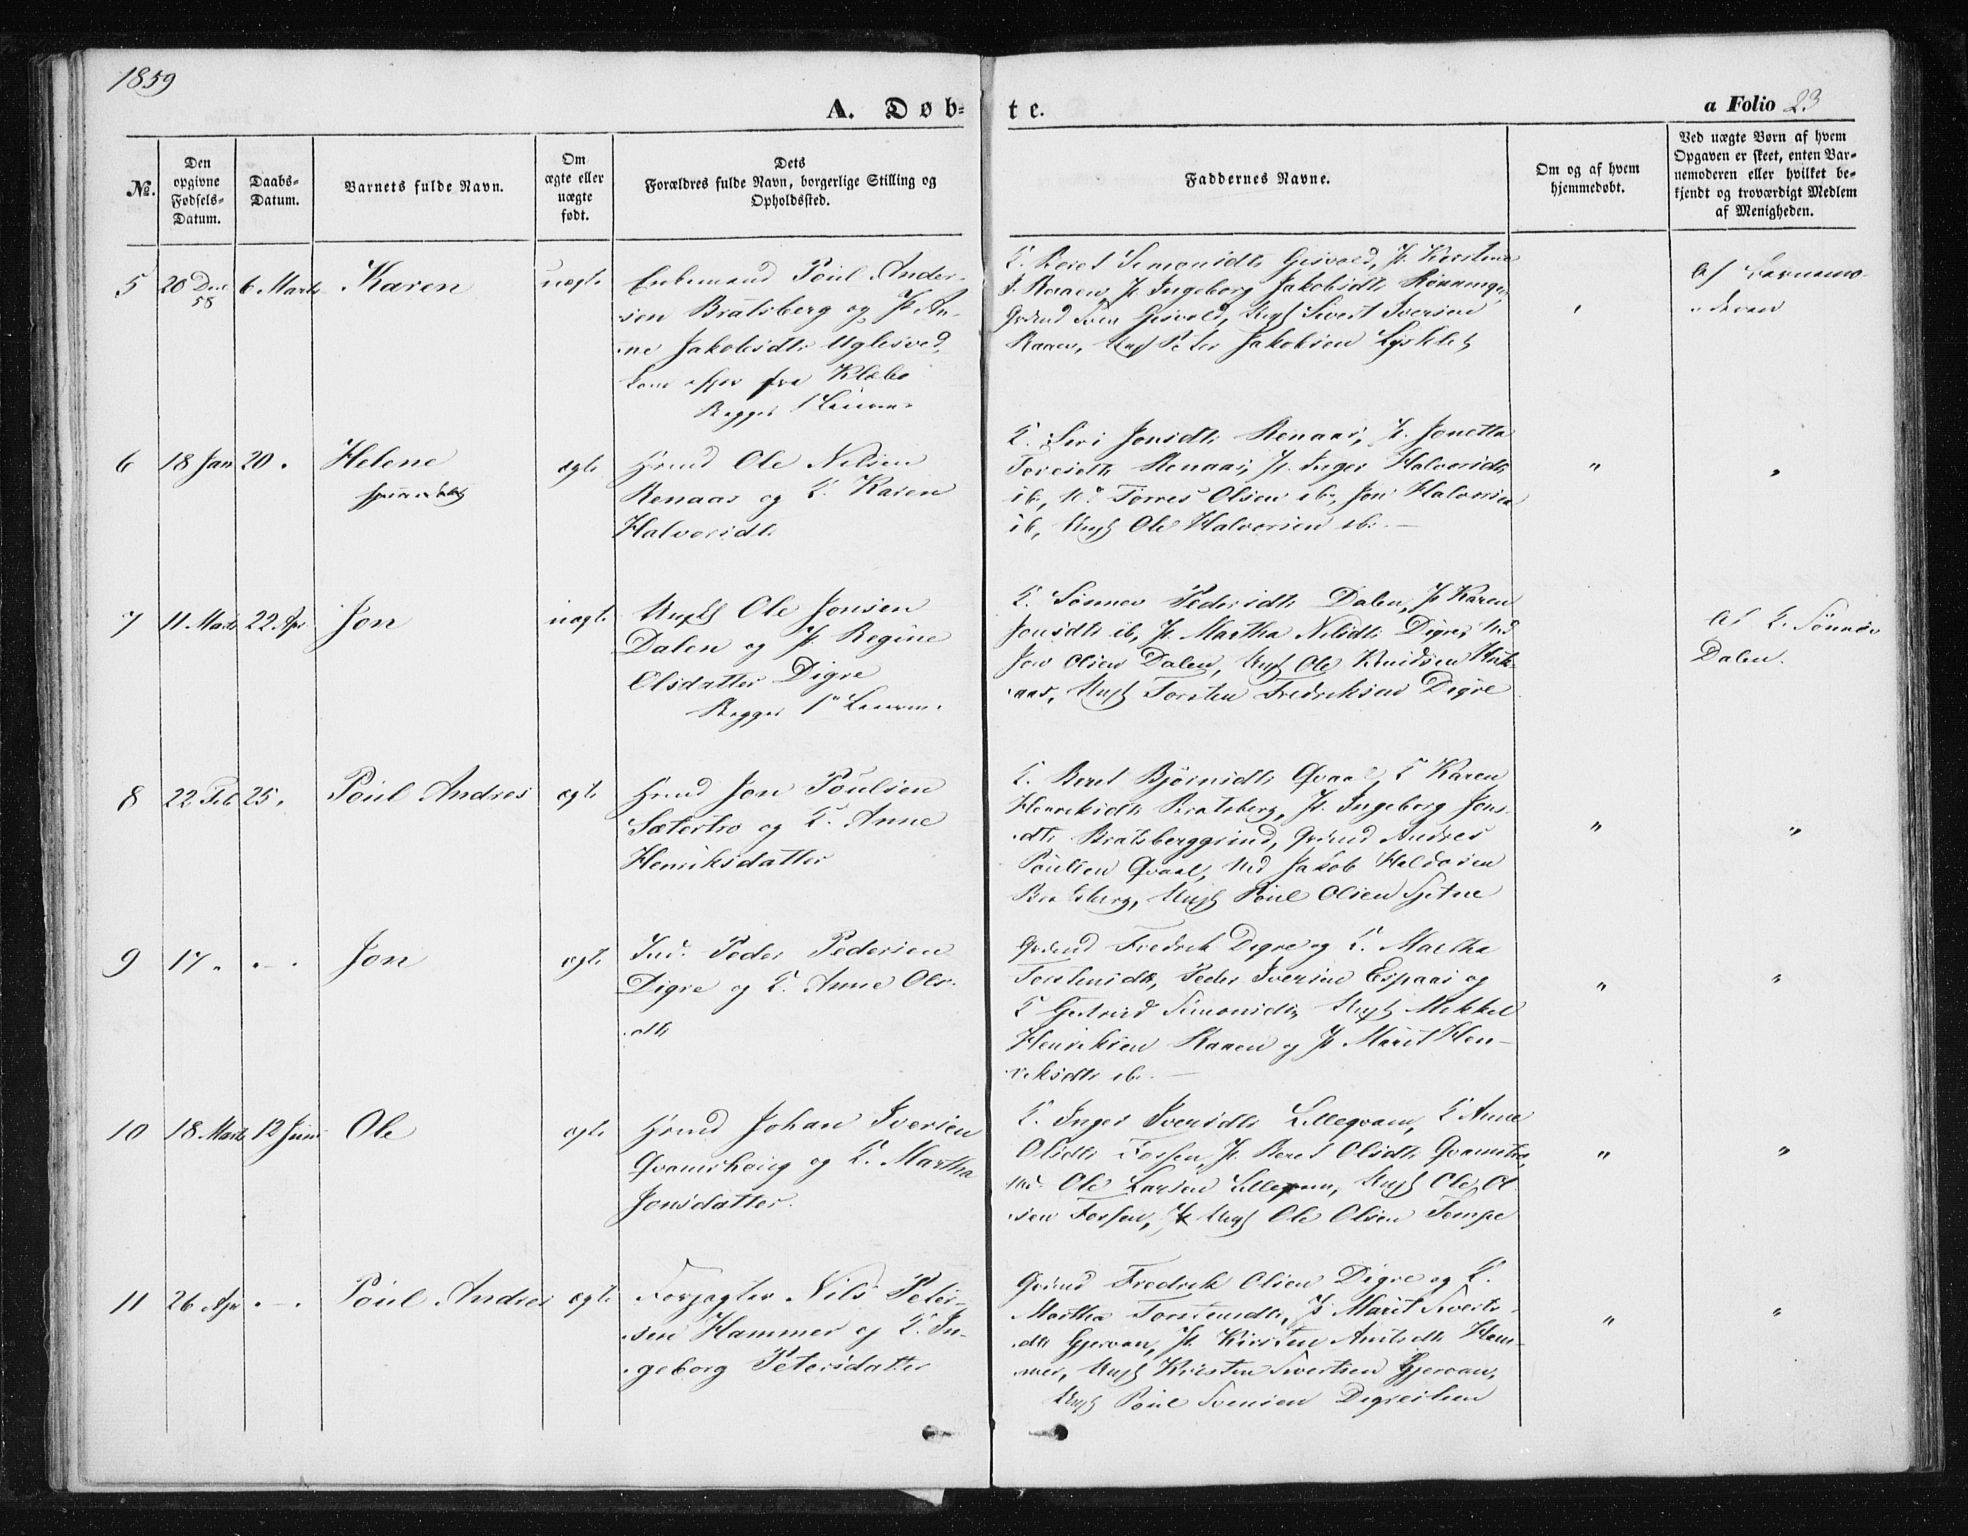 1859
A. Døb-
te.
a Folio 23
No.
Den
opgivne
Fødsels-
Datum.
Daabs-
Datum.
Barnets fulde Navn.
Om
ægte eller
uægte
født.
Dets
Forældres fulde Navn, borgerlige Stilling og
Opholdssted.
Faddernes Navne.
Om og af hvem
hjemmedøbt.
Ved uægte Børn af hvem
Opgaven er skeet, enten Bar-
nemoderen eller hvilket be-
kjendt og troværdigt Medlem
af Menigheden.
5
20 Dec
58
6 Marts
Karen
uægte
Enkemand Poul Ander-
sen Bratsberg og P. An-
ne Jakobsdtr Uglesved,
fra Klæbo
Begges 1ste Leierm.
K. Beret Simonsdtr Gisvold, P. Kirstine
J. Raaen, P. Ingeborg Jakobsdtr Rønningen,
Grdmd Sven Gisvold, Ungk Sivert Iversen
Raaen, Ungk Peter Jakobsen Lysklet
Af Barnemo-
deren
6
18 Jan
20 "
Helene
ægte
Hsmd Ole Nilsen
Renaas og K. Karen
Halvorsdtr
K. Siri Jonsdtr Renaas, P. Jonetta
Toresdtr Renaas, P. Inger Halvorsdtr
ib, Md. Torres Olsen ib, Jon Halvorsen
ib, Ungk Ole Halvorsen ib. —
"
"
7
11 Marts
22 Apr
Jon
uægte
Ungk Ole Jonsen
Dalen og P. Regine
Olsdatter Digre
Begges 1ste Leierm.
K. Sønnev Pedersdtr Dalen, P. Karen
Jonsdtr ib, P. Martha Nilsdtr Digre, Md
Jon Olsen Dalen, Ungk Ole Knudsen
aas, Ungk Torsten Fredriksen Digre
Af K. Sønnev
Dalen.
8
22 Feb
25 "
Poul Andreas
ægte
Hsmd Jon Poulsen
Sætertrø og K. Anne
Henriksdatter
K. Beret Bjørnsdtr Qvaal, K Karen
Henriksdtr Bratsberg, P. Ingeborg Jons-
dtr Bratsberggrind, Grdmd Andreas
Poulsen Qvaal, Md Jakob Haldosen
Bratsberg, Ungk Poul Olsen Sjetne
"
"
9
17 "
" — "
Jon
ægte
Ind. Peder Pedersen
Digre og K. Anne Ols-
dtr
Grdmd Fredrik Digre og K. Martha
Torstensdtr, Peder Iversen Espaas og
K Gertrud Simonsdtr, Ungk Mikkel
Henriksen Raaen og P. Marit Hen-
riksdtr ib. —
"
"
10
18 Marts
12 Juni
Ole
ægte
Hsmd Johan Iversen
Qvamshaug og K. Martha
Jonsdatter.
K. Inger Iversdtr Lillegvam, K Anne
Olsdtr Fossen, P. Beret Olsdtr Qvamstrø,
Md. Ole Larsen Lillegvam, Ungk Ole Ol-
sen Fossen, Ungk Ole Olsen Tempe
"
"
11
26 Apr
" — "
Poul Andreas
ægte
Forpagter Nils Peter-
sen Hammer og K. In-
geborg Petersdatter
Grdmd Fredrik Olsen Digre og K.
Martha Torstensdtr, P. Marit Siverts-
dtr Gjervan, P. Kirsten Arntsdtr Ham-
mer, Ungk Kristen Sivertsen Gjervan,
Ungk Poul Svensen Digreslien
"
"